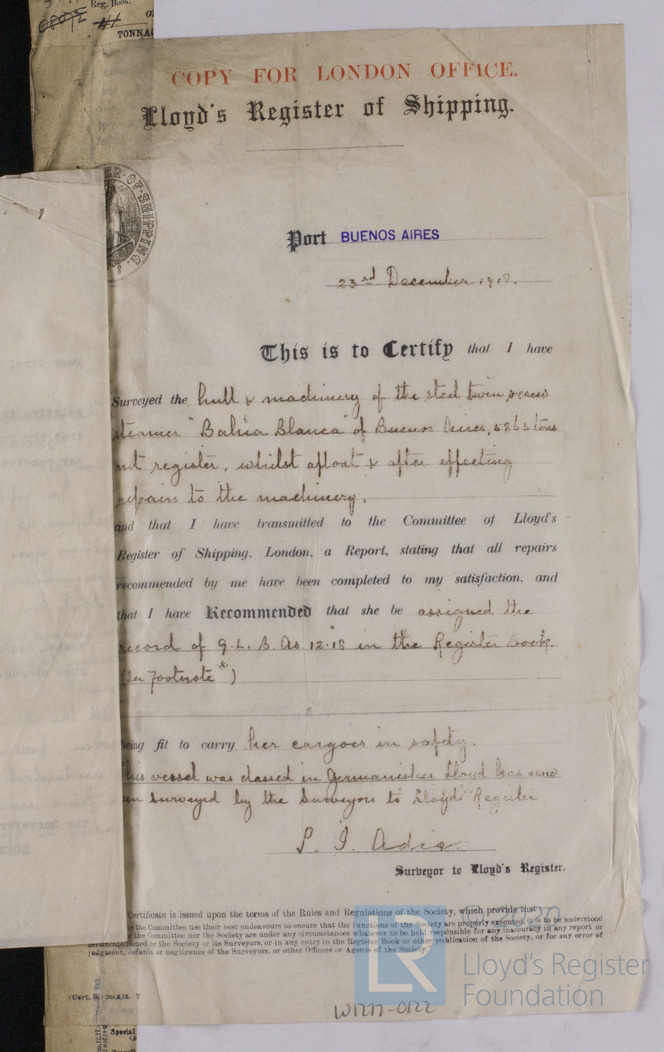 Reg. Book.
TONNA
COPY FOR LONDON OFFICE.
Lloyd's Register of Shipping.
OF SHIPPING.
Port BUENOS AIRES
23rd December 1918.
This is to Certify that I have
Surveyed the hull & machinery of the steel twin screw
steamer "Bahia Blanca" of Buenos Aires, tons
net register, whilst afloat & after effecting
repairs to the machinery.
and that I have transmitted to the Committee of Lloyd's
Register of Shipping, London, a Report, stating that all repairs
recommended by me have been completed to my satisfaction, and
that I have Recommended that she be assigned the
record of G.L. B.As 12.18 in the Register Book.
(See Footnote*)
being fit to carry her cargoes in safety.
This vessel was classed in Germanischer Lloyd & has now
been surveyed by the Surveyors to Lloyd's Register
Surveyor to Lloyd's Register.
Certificate is issued upon the terms of the Rules and Regulations of the Society, which provide that
the Committee use their best endeavours to ensure that the functions of the Society are properly executed, it is to be understood
the Committee nor the Society are under any circumstances whatever to be held responsible for any inaccuracy in any report or
certificate issued by the Society or its Surveyors, or in any entry in the Register Book or other publication of the Society, or for any error of
judgment, default or negligence of the Surveyors, or other Officers or Agents of the Society.
(Cert. B.) T
Special
© 2020
LR
Lloyd's Register
Foundation
W1277-0122